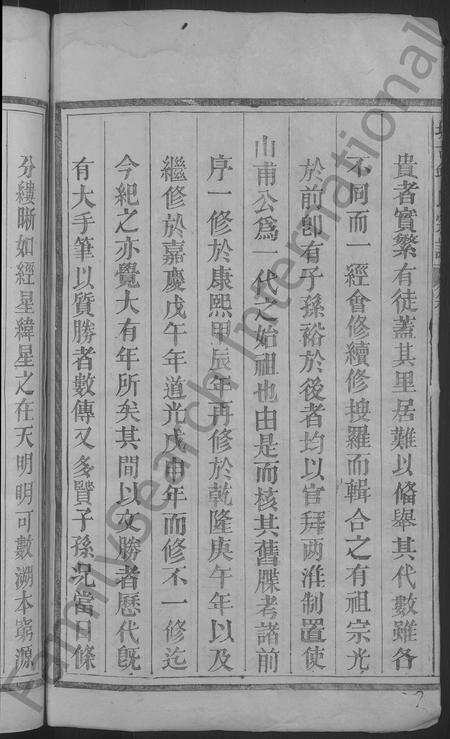 貴者實繁有徒蓋其里居難以僃舉其代數雖各
不同而一經會修續修搜羅而輯合之有祖宗光
於前卽有子孫裕於後者均以官拜两淮制置使
山甫公爲一代之始祖也由是而核其舊牒考諸前
序一修於康熙甲辰年再修於乾隆庚午年以及
繼修於嘉慶戊午年道光戊申年而修不一修迄
今紀之亦覺大有年所矣其間以文勝者歷代旣
有大手筆以質勝者數傳又多賢子孫况當日條
分縷晰如經星緯星之在天明明可數溯本窮源
FamilySearch International